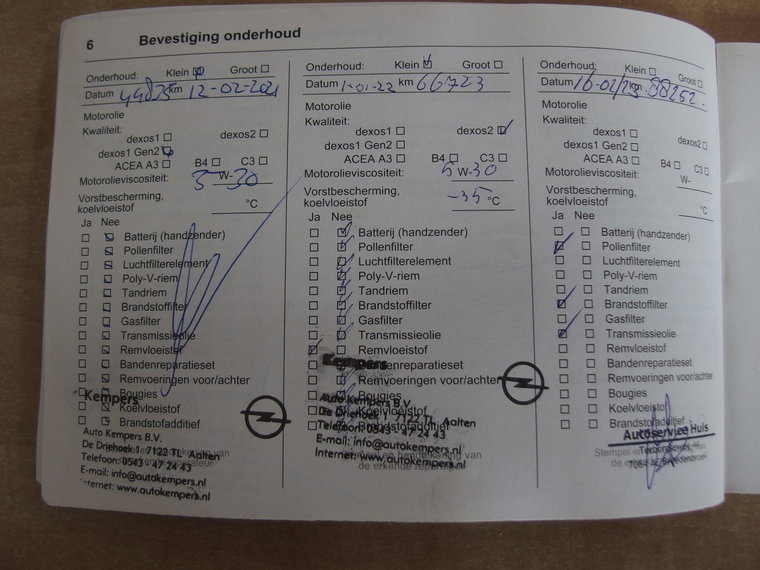 6 Bevestiging onderhoud
Onderhoud: Klein Groot
Datum 44825 km 12-02-2021
Motorolie
Kwaliteit:
dexos1 dexos2
dexos1 Gen2
ACEA A3 B4 C3
Motorolieviscositeit: 5 W-30
Vorstbescherming,
koelvloeistof °C
Ja Nee
Batterij (handzender)
Pollenfilter
Luchtfilterelement
Poly-V-riem
Tandriem
Brandstoffilter
Gasfilter
Transmissieolie
Remvloeistof
Bandenreparatieset
Remvoeringen voor/achter
Bougies
Koelvloeistof
Brandstofadditief
Kempers
Auto Kempers B.V.
De Driehoek 1 7122 TL Aalten
Telefoon: 0543 - 47 24 43
E-mail: info@autokempers.nl
Internet: www.autokempers.nl
Onderhoud: Klein Groot
Datum 1-01-22 km 66723
Motorolie
Kwaliteit:
dexos1 dexos2
dexos1 Gen2
ACEA A3 B4 C3
Motorolieviscositeit: 5 W-30
Vorstbescherming,
koelvloeistof -35 °C
Ja Nee
Batterij (handzender)
Pollenfilter
Luchtfilterelement
Poly-V-riem
Tandriem
Brandstoffilter
Gasfilter
Transmissieolie
Remvloeistof
Bandenreparatieset
Remvoeringen voor/achter
Bougies
Koelvloeistof
Brandstofadditief
Kempers
Auto Kempers B.V.
De Driehoek 1 7122 TL Aalten
Telefoon: 0543 - 47 24 43
E-mail: info@autokempers.nl
Internet: www.autokempers.nl
Onderhoud: Klein Groot
Datum 16-02/23 km 88252
Motorolie
Kwaliteit:
dexos1 dexos2
dexos1 Gen2
ACEA A3 B4 C3
Motorolieviscositeit: W-
Vorstbescherming,
koelvloeistof °C
Ja Nee
Batterij (handzender)
Pollenfilter
Luchtfilterelement
Poly-V-riem
Tandriem
Brandstoffilter
Gasfilter
Transmissieolie
Remvloeistof
Bandenreparatieset
Remvoeringen voor/achter
Bougies
Koelvloeistof
Brandstofadditief
Autoservice Huls
Stempel en
de er
7084